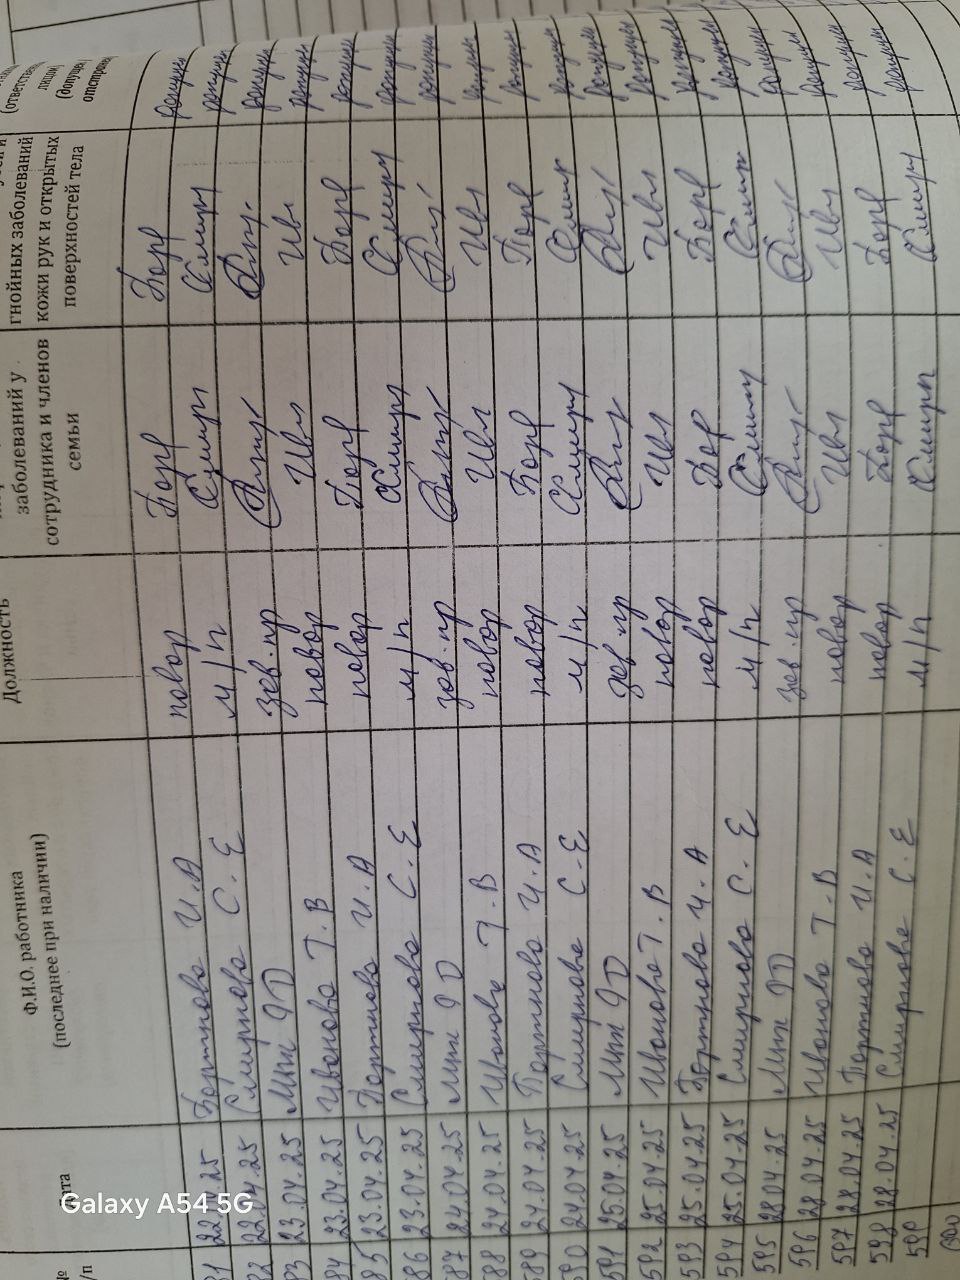 № п/п Дата Ф.И.О. работника (последнее при наличии) Должность заболеваний у сотрудника и членов семьи гнойных заболеваний кожи рук и открытых поверхностей тела (ответствен лицом) (допущен отстранен
22.04.25 Бортнова И.А повар Борт допущен
22.04.25 Смирнова С.Е м/п Смирн допущен
23.04.25 зав.пр допущен
23.04.25 Иванова Т.В повар Ив допущен
23.04.25 Бортнова И.А повар Борт допущен
586 23.04.25 Смирнова С.Е м/п Смирн допущен
587 24.04.25 зав.пр допущен
588 24.04.25 Иванова Т.В повар Ив допущен
589 24.04.25 Бортнова И.А повар Борт допущен
590 24.04.25 Смирнова С.Е м/п Смирн допущен
591 25.04.25 зав.пр допущен
592 25.04.25 Иванова Т.В повар Ив допущен
593 25.04.25 Бортнова И.А повар Борт допущен
594 25.04.25 Смирнова С.Е м/п Смирн допущен
595 28.04.25 зав.пр допущен
596 28.04.25 Иванова Т.В повар Ив допущен
597 28.04.25 Бортнова И.А повар Борт допущен
598 28.04.25 Смирнова С.Е м/п Смирн допущен
599
600
Galaxy A54 5G